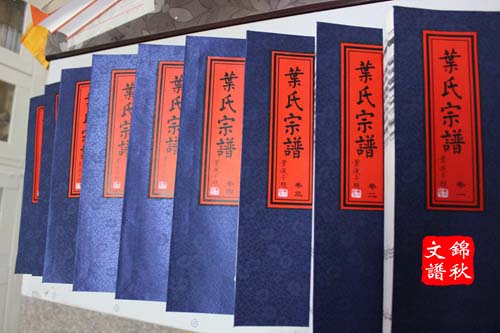 葉氏宗譜
卷一
葉氏宗譜
卷二
葉氏宗譜
卷三
葉氏宗譜
卷四
葉氏宗譜
葉氏宗譜
葉氏宗譜
錦秋
文譜